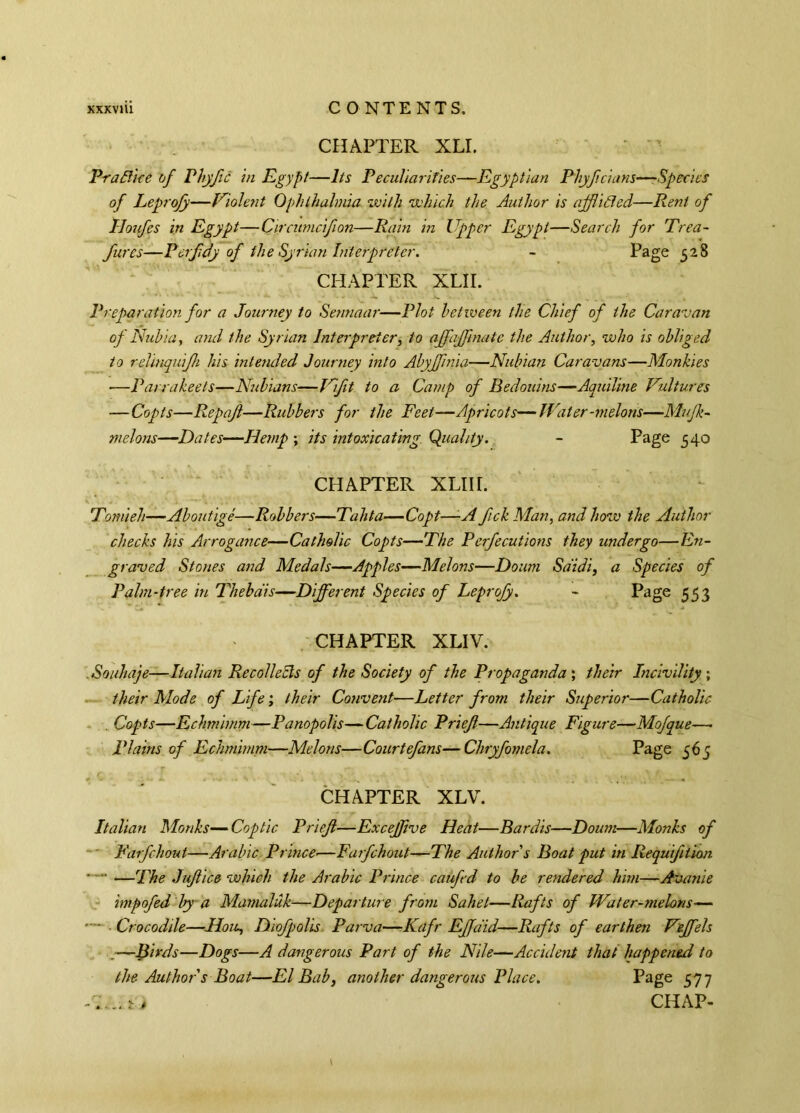 xxxviii CONTENTS.
CHAPTER XLI.
Practice of Phyſic in Egypt—Its Peculiarities—Egyptian Phyſicians—Species
of Leproſy—Violent Ophthalmia with which the Author is afflicted—Rent of
Houſes in Egypt—Circumciſion—Rain in Upper Egypt—Search for Trea-
ſures—Perfidy of the Syrian Interpreter. - Page 528
CHAPTER XLII.
Preparation for a Journey to Sennaar—Plot between the Chief of the Caravan
of Nubia, and the Syrian Interpreter, to aſſaſſinate the Author, who is obliged
to relinquiſh his intended Journey into Abyſſinia—Nubian Caravans—Monkies
—Parrakeets—Nubians—Viſit to a Camp of Bedouins—Aquiline Vultures
—Copts—Repaſt—Rubbers for the Feet—Apricots—Water-melons—Muſk-
melons—Dates—Hemp; its intoxicating Quality. - Page 540
CHAPTER XLIII.
Tomieh—Aboutigé—Robbers—Tahta—Copt—A ſick Man, and how the Author
checks his Arrogance—Catholic Copts—The Perſecutions they undergo—En-
graved Stones and Medals—Apples—Melons—Doum Saïdi, a Species of
Palm-tree in Thebaïs—Different Species of Leproſy. - Page 553
CHAPTER XLIV.
Souhaje—Italian Recollects of the Society of the Propaganda; their Incivility;
their Mode of Life; their Convent—Letter from their Superior—Catholic
Copts—Echmimm—Panopolis—Catholic Prieſt—Antique Figure—Moſque—
Plains of Echmimm—Melons—Courteſans—Chryſomela. Page 565
CHAPTER XLV.
Italian Monks—Coptic Prieſt—Exceſſive Heat—Bardis—Doum—Monks of
Farſchout—Arabic Prince—Farſchout—The Author's Boat put in Requiſition
—The Juſtice which the Arabic Prince cauſed to be rendered him—Avanie
impoſed by a Mamalúk—Departure from Sahet—Rafts of Water-melons—
Crocodile—Hou, Dioſpolis Parva—Kafr Eſſaïd—Rafts of earthen Veſſels
—Birds—Dogs—A dangerous Part of the Nile—Accident that happened to
the Author's Boat—El Bab, another dangerous Place. Page 577
CHAP-